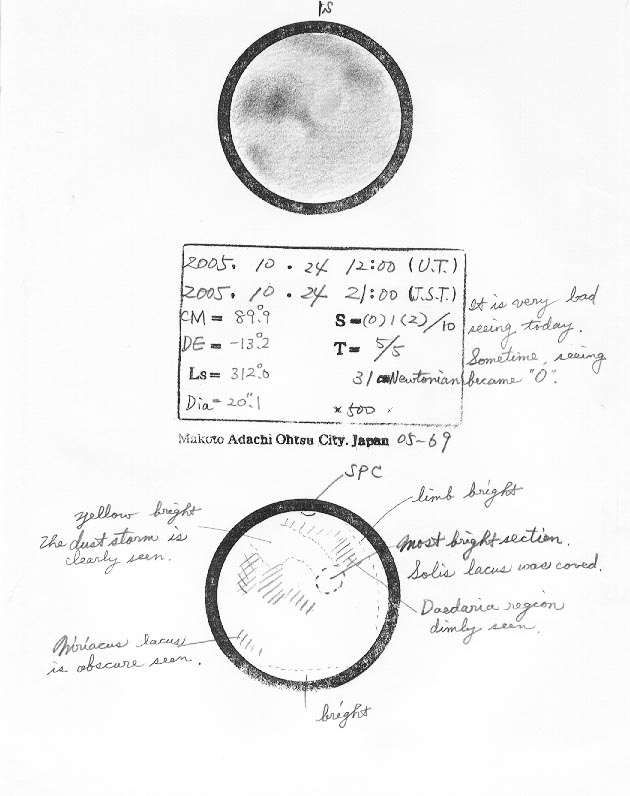 2005. 10. 24 12:00 (U.T.)
2005. 10. 24 21:00 (J.S.T.)
CM = 89.°9 S=(0)1(2)/10
DE = -13.°2 T= 5/5
Ls = 312.°0 31cm Newtonian
Dia = 20".1 ×500
It is very bad
seeing today.
Sometime, seeing
became "0".
Makoto Adachi Ohtsu City. Japan 05-69
SPC
limb bright
yellow bright
The dust storm is
clearly seen.
Most bright section.
Solis lacus was coved.
Daedaria region
dimly seen.
lacus
is obscure seen.
bright